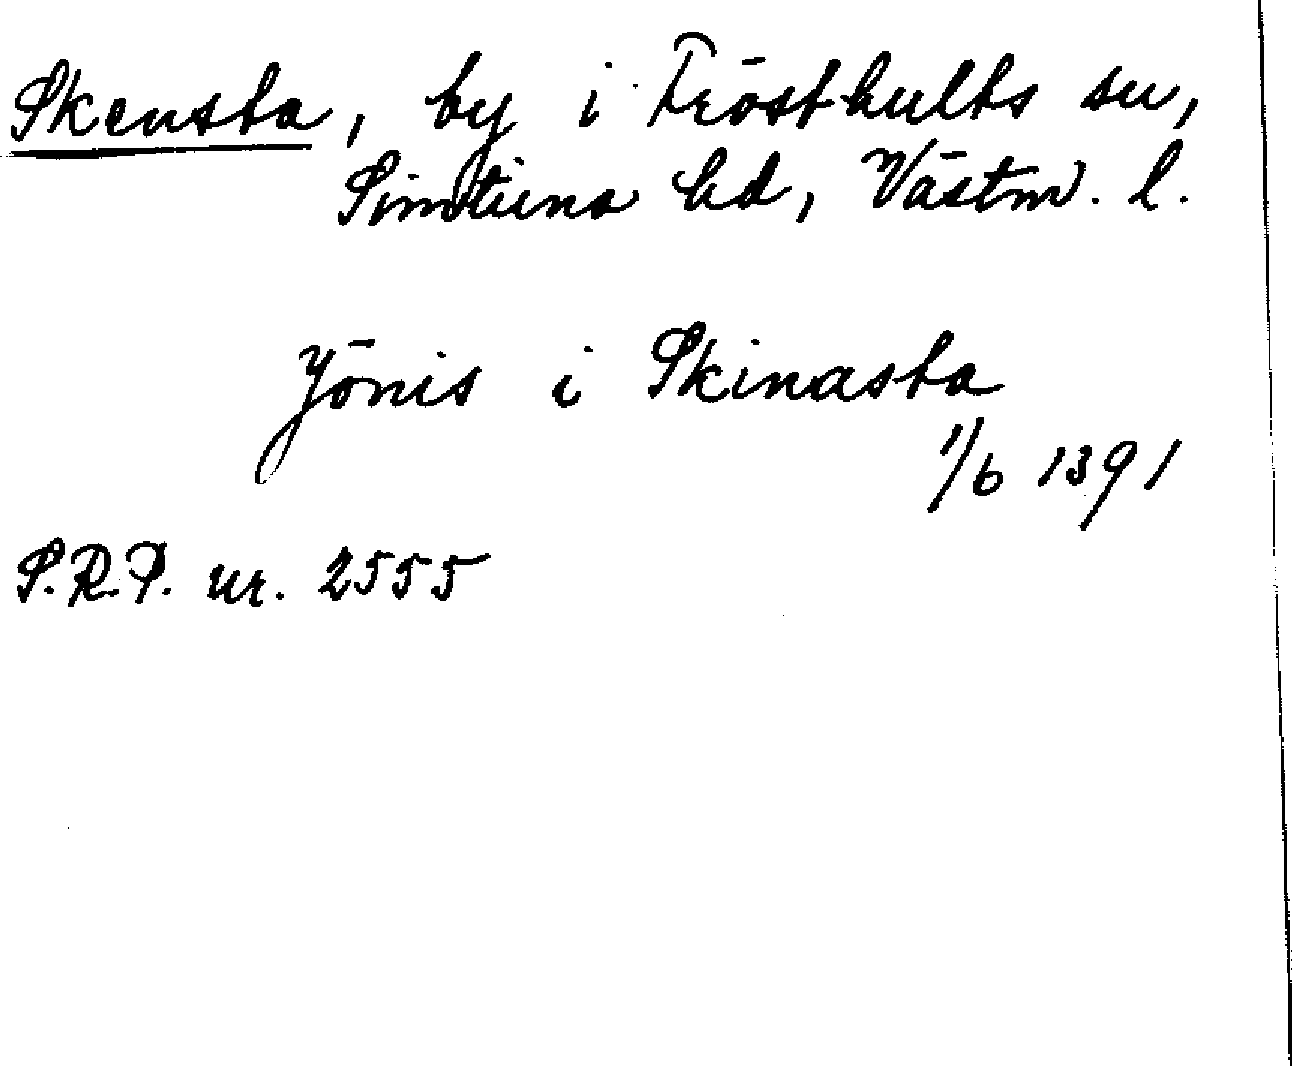 Skensta, by i Frösthults sn,
Simtuna hd, Västm. l.
Jönis i Skinasta
1/6 1391
S.R.P. nr. 2555